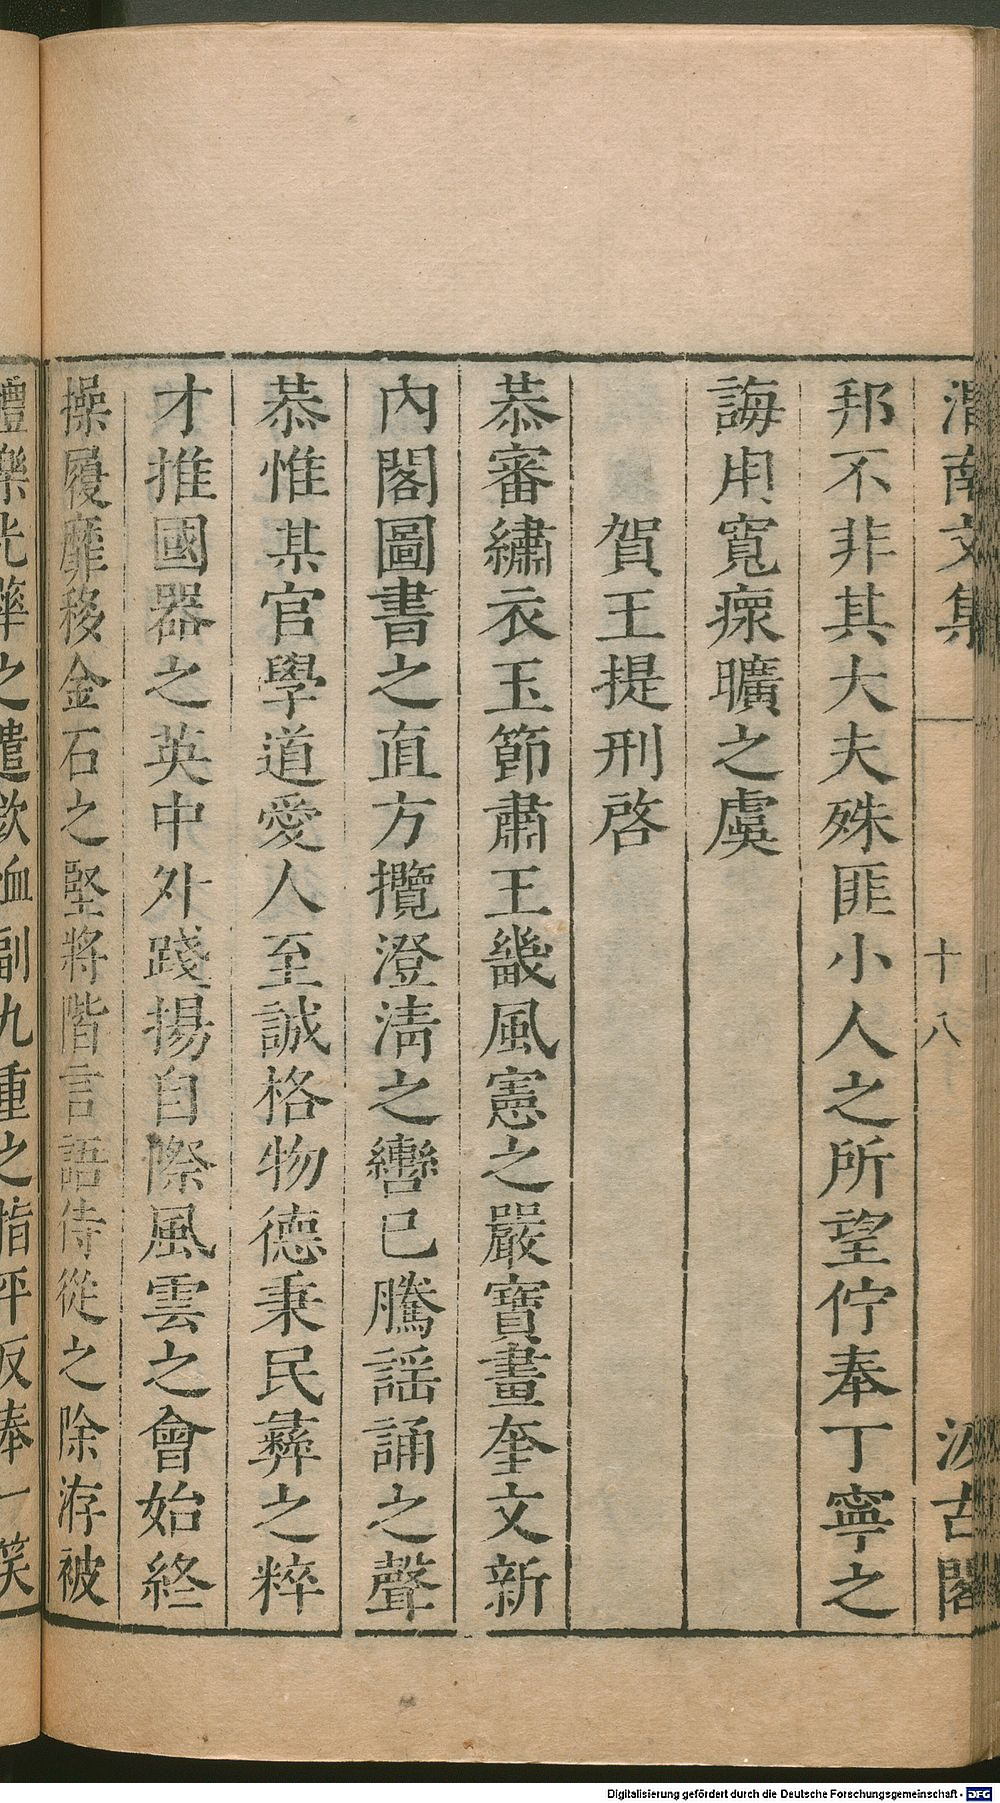 渭南文集 十八 汲古閣
邦不非其大夫殊匪小人之所望佇奉丁寧之
誨用寬瘝曠之虞
賀王提刑啓
恭審繡衣玉節肅王畿風憲之嚴寶畫奎文新
內閣圖書之直方攬澄清之轡已騰謡誦之聲
恭惟某官學道愛人至誠格物德秉民彝之粹
才推國器之英中外踐揚自際風雲之會始終
操履靡移金石之堅將階言語侍從之除洊被
禮樂光華之遣欽恤副九重之指平反奉一笑
Digitalisierung gefördert durch die Deutsche Forschungsgemeinschaft - DFG